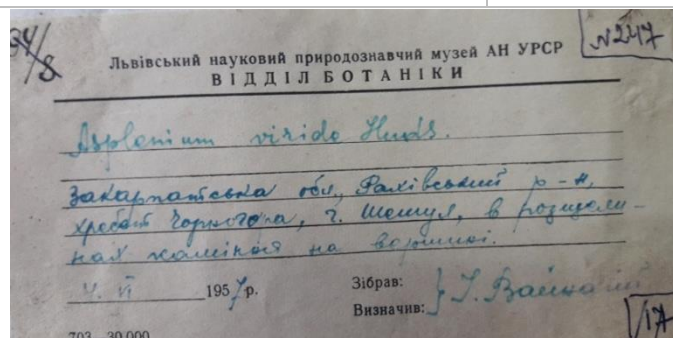 34/8
№247
Львівський науковий природознавчий музей АН УРСР
ВІДДІЛ БОТАНІКИ
Asplenium viride Huds.
Закарпатська обл., Рахівський р-н,
хребет Чорногора, г. Шешул, в розщели-
нах каміння на вершині.
4. VI 1957 р.
Зібрав:
Визначив:
703—30.000
17